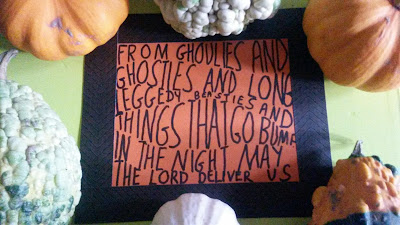 FROM GHOULIES AND
GHOSTIES AND LONG
LEGGEDY BEASTIES AND
THINGS THAT GO BUMP
IN THE NIGHT MAY
THE LORD DELIVER US